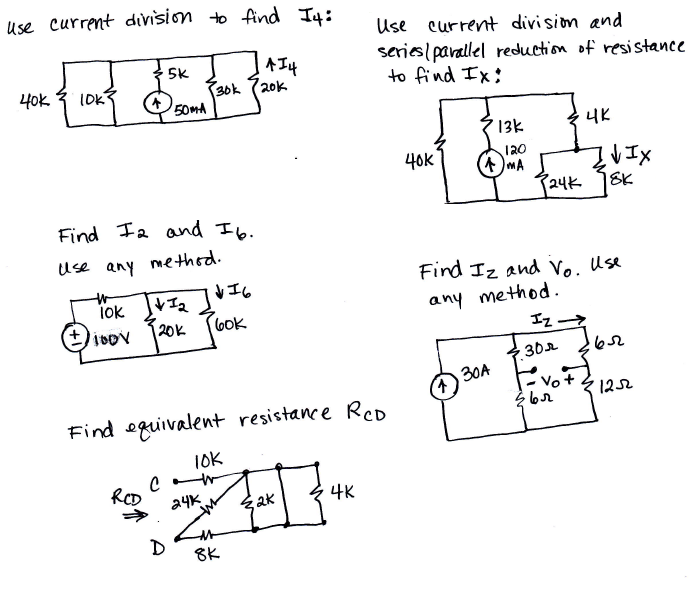 Use current division to find I4:
40K
10K
5K
50mA
30K
↑I4
20K
Use current division and
series/parallel reduction of resistance
to find Ix:
40K
13K
120
mA
4K
24K
↓Ix
8K
Find I2 and I6.
Use any method.
10K
100V
↓I2
20K
↓I6
60K
Find Iz and Vo. Use
any method.
Iz →
30A
30Ω
6Ω
- Vo +
6Ω
12Ω
Find equivalent resistance RCD
10K
C
RCD
⇒
24K
2K
4K
D
8K